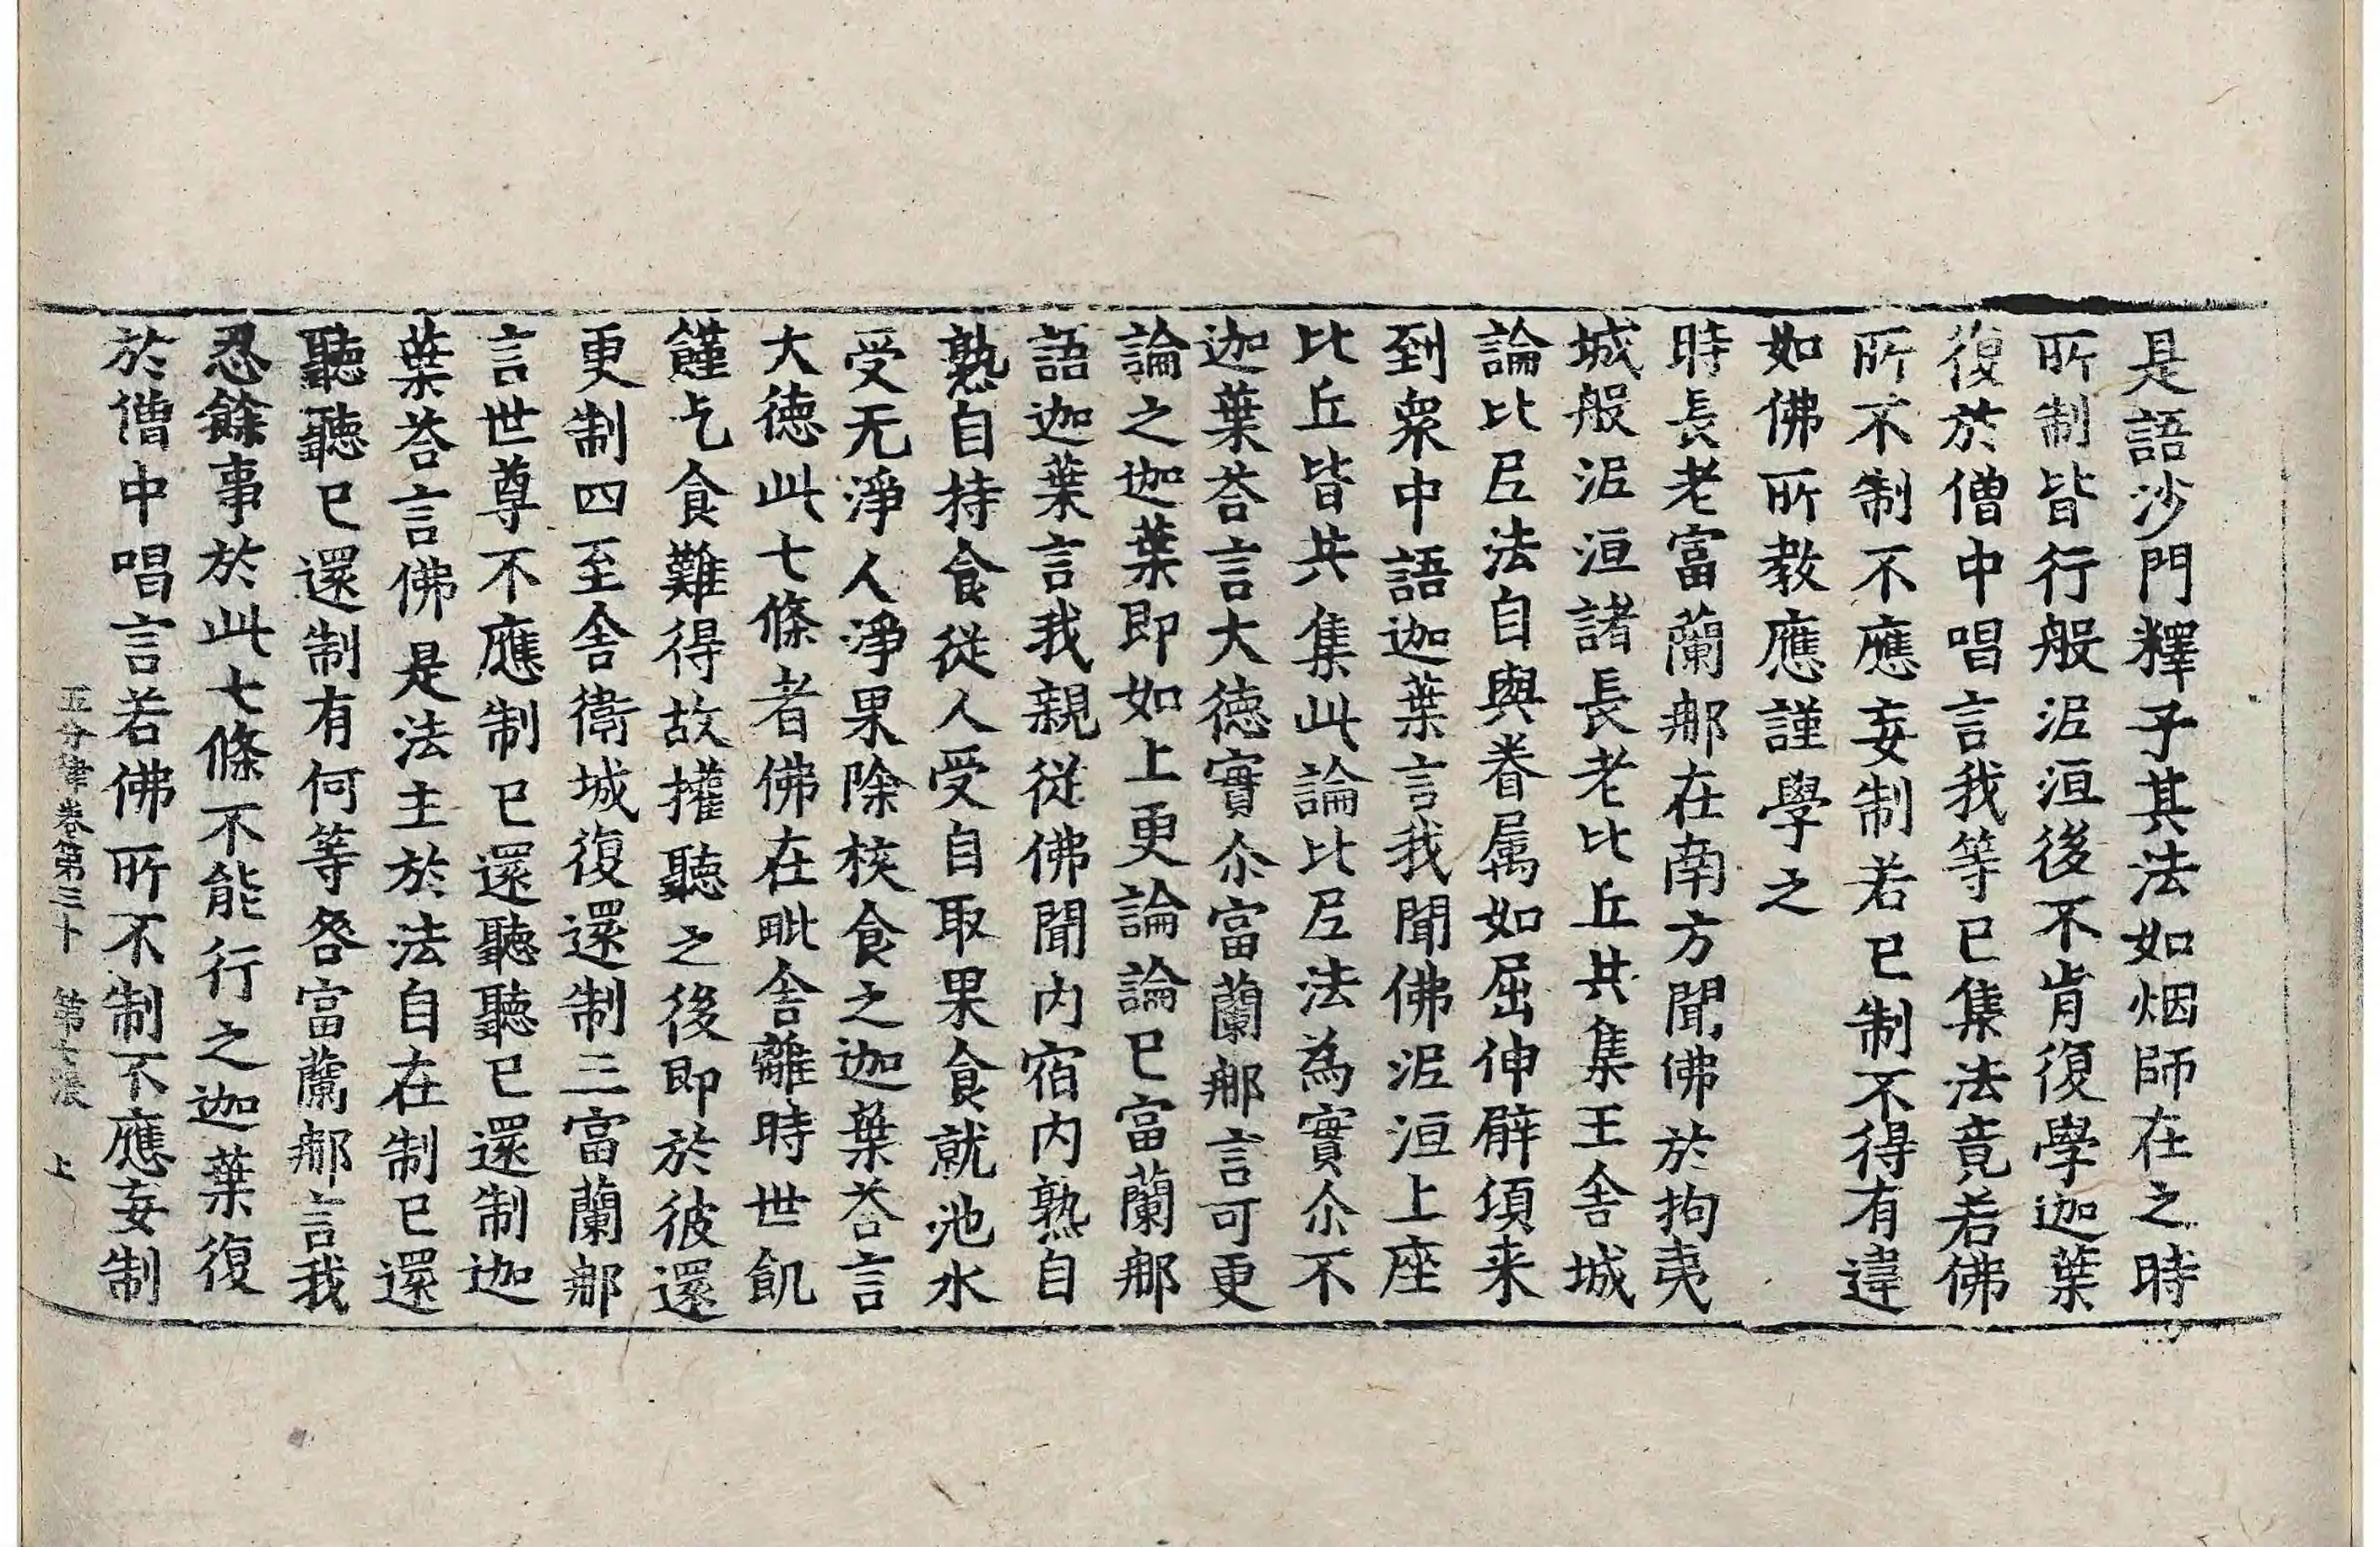 是語沙門釋子其法如烟師在之時
所制皆行般泥洹後不肯復學迦葉
復於僧中唱言我等已集法竟若佛
所不制不應妄制若已制不得有違
如佛所教應謹學之
時長老富蘭那在南方聞佛於拘夷
城般泥洹諸長老比丘共集王舍城
論比尼法自與眷属如屈伸臂頃来
到衆中語迦葉言我聞佛泥洹上座
比丘皆共集此論比尼法為實尒不
迦葉荅言大德實尒富蘭那言可更
論之迦葉即如上更論論已富蘭那
語迦葉言我親從佛聞内宿内熟自
熟自持食從人受自取果食就池水
受无淨人淨果除核食之迦葉荅言
大德此七條者佛在毗舍離時世飢
饉乞食難得故權聽之後即於彼還
更制四至舍衛城復還制三富蘭那
言世尊不應制已還聽聽已還制迦
葉荅言佛是法主於法自在制已還
聽聽已還制有何等咎富蘭那言我
忍餘事於此七條不能行之迦葉復
於僧中唱言若佛所不制不應妄制
五分律卷第三十 第七張 上